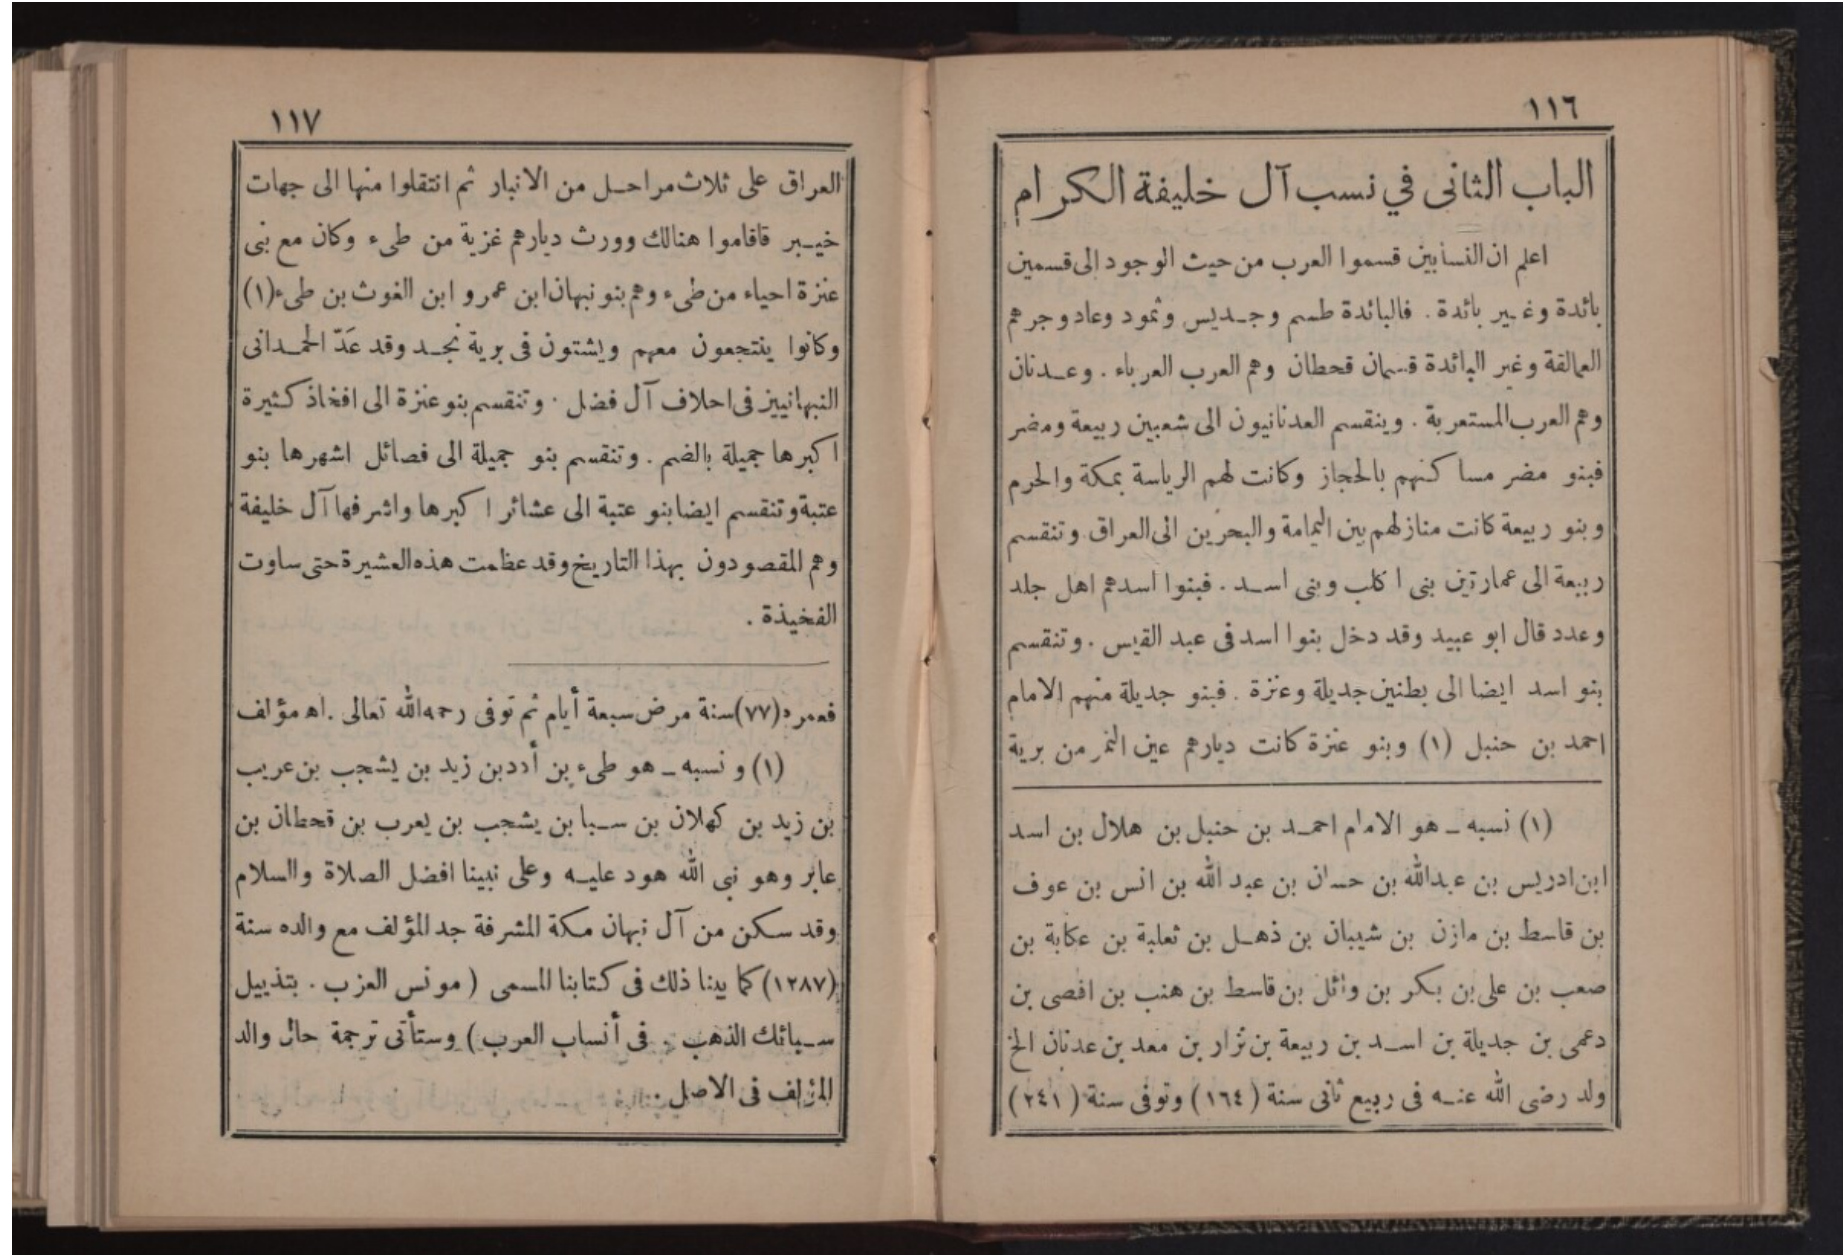 ١١٦
الباب الثانى في نسب آل خليفة الكرام
اعلم ان النسابين قسموا العرب من حيث الوجود الى قسمين
بائدة وغير بائدة . فالبائدة طسم وجديس وثمود وعاد وجرهم
العمالقة وغير البائدة قسمان قحطان وهم العرب العرباء . وعدنان
وهم العرب المستعربة . وينقسم العدنانيون الى شعبين ربيعة ومضر
فبنو مضر مساكنهم بالحجاز وكانت لهم الرياسة بمكة والحرم
وبنو ربيعة كانت منازلهم بين اليمامة والبحرين الى العراق وتنقسم
ربيعة الى عمارتين بنى اكلب وبنى اسد . فبنوا اسدهم اهل جلد
وعدد قال ابو عبيد وقد دخل بنوا اسد فى عبد القيس . وتنقسم
بنو اسد ايضا الى بطنين جديلة وعنزة . فبنو جديلة منهم الامام
احمد بن حنبل (١) وبنو عنزة كانت ديارهم عين التمر من برية
(١) نسبه ــ هو الامام احمد بن حنبل بن هلال بن اسد
ابن ادريس بن عبدالله بن حسان بن عبد الله بن انس بن عوف
بن قاسط بن مازن بن شيبان بن ذهل بن ثعلبة بن عكابة بن
صعب بن على بن بكر بن وائل بن قاسط بن هنب بن افصى بن
دعمى بن جديلة بن اسد بن ربيعة بن نزار بن معد بن عدنان الخ
ولد رضى الله عنه فى ربيع ثانى سنة (١٦٤) وتوفى سنة (٢٤١)
١١٧
العراق على ثلاث مراحل من الانبار ثم انتقلوا منها الى جهات
خيبر فاقاموا هنالك وورث ديارهم غزية من طىء وكان مع بنى
عنزة احياء من طىء وهم بنو نبهان ابن عمرو ابن الغوث بن طىء (١)
وكانوا ينتجعون معهم ويشتون فى برية نجد وقد عَدّ الحمدانى
النبهانيين فى احلاف آل فضل . وتنقسم بنو عنزة الى افخاذ كثيرة
اكبرها جميلة بالضم . وتنقسم بنو جميلة الى فصائل اشهرها بنو
عتبة وتنقسم ايضا بنو عتبة الى عشائر اكبرها واشرفها آل خليفة
وهم المقصودون بهذا التاريخ وقد عظمت هذه العشيرة حتى ساوت
الفخيذة .
فعمره (٧٧) سنة مرض سبعة أيام ثم توفى رحمه الله تعالى . اه مؤلف
(١) ونسبه ــ هو طىء بن أدد بن زيد بن يشجب بن عريب
بن زيد بن كهلان بن سبا بن يشجب بن يعرب بن قحطان بن
عابر وهو نبى الله هود عليه وعلى نبينا افضل الصلاة والسلام
وقد سكن من آل نبهان مكة المشرفة جد المؤلف مع والده سنة
(١٢٨٧) كما بينا ذلك فى كتابنا المسمى ( مونس العزب . بتذييل
سبائك الذهب . فى أنساب العرب ) وستأتى ترجمة حال والد
المؤلف فى الاصل .